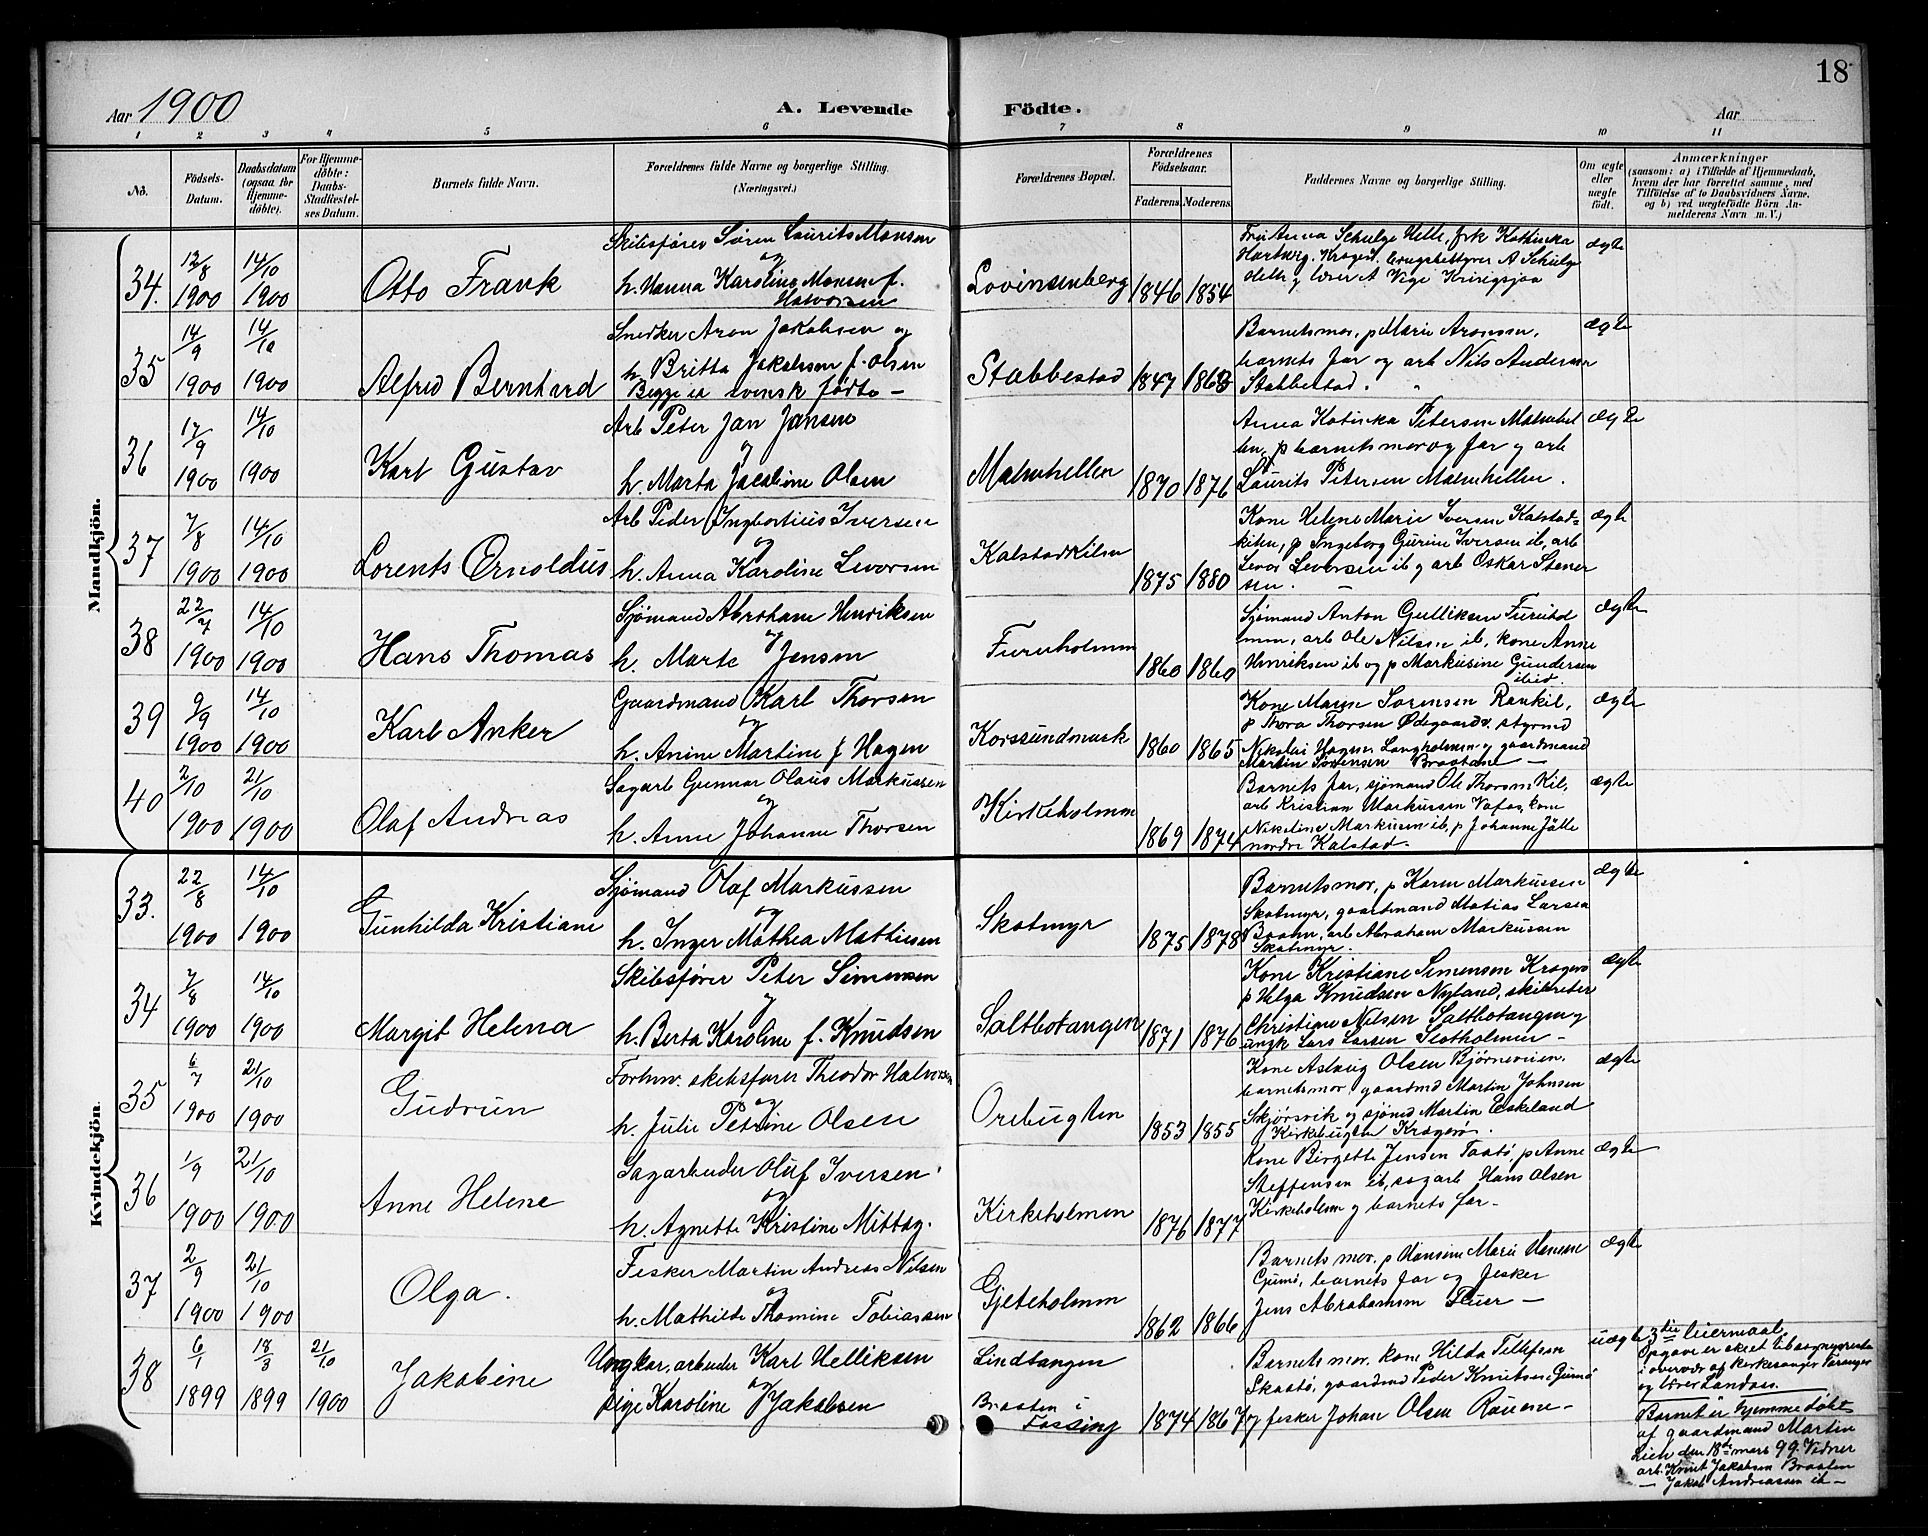 18
Aar 1900
A. Levende Födte.
Aar
1 2 3 4 5 6 7 8 9 10 11
No.
Födsels-Datum.
Daabsdatum (ogsaa for Hjemmedöbte).
For Hjemmedöbte: Daabs-Stadfæstelses Datum.
Barnets fulde Navn.
Forældrenes fulde Navne og borgerlige Stilling. (Næringsvei.)
Forældrenes Bopæl.
Forældrenes Födselsaar.
Faderens. Moderens.
Faddernes Navne og borgerlige Stilling.
Om ægte eller uægte födt.
Anmærkninger
(saasom: a) i Tilfælde af Hjemmedaab, hvem der har forrettet samme, med Tilföielse af to Daabsvidners Navne. og b) ved uægtefödte Börn Anmelderens Navn m.V.)
Mandkjön.
34. 12/8 1900 14/10 1900 Otto Frank
Skibsfører Søren Laurits Monsen
og
h. Hanna Karoline Monsen f.
Halvorsen
Lovinsenberg 1846 1854
Fru Anna Schulze Helle, frk Kathinka
Hartwig. Kragerø. brugsbestyrer A Schulze
Helle y lærer A Vige Kririgsjaa
ægte
35 14/9 1900 14/10 1900 Alfred Bernhard
Snedker Aron Jakobsen og
h Britta Jakobsen f. Olsen
Begge er svensk fødte -
Stabbestad 1847 1863
Barnets mor, p Marie Aronsen,
barnets far og arb Nils Andersen
Stabbestad.
ægte
36 17/9 1900 14/10 1900 Karl Gustav
Arb Peter Jan Jansen
y
h. Marta Jacobine Olsen
Malmhellen 1870 1876
Anna Katinka Petersen Malmhel
len, p barnets mor og far y arb
Laurits Petersen Malmhellen.
ægte
37 7/8 1900 14/10 1900 Lorents Ernoldus
Arb Peder Ingbortius Iversen
og
h. Anna Karoline Levorsen
Kalstadkilen 1875 1880
Kone Helene Marie Iversen Kalstad-
kilen, p Ingeborg Gurine Iversen ib, arb
Levor Levorsen ib y arb Oskar Stener
sen.
ægte
38 22/7 1900 14/10 1900 Hans Thomas
Sjømand Abraham Henriksen
y
h. Marte Jensen
Furuholmen 1860 1860
Sjømand Anton Gulliksen Furuhol
men, arb Ole Nilsen ib, kone Anne
Henriksen ib og p Markusine Gundersen
ibid.
ægte
39 9/9 1900 14/10 1900 Karl Anker
Gaardmand Karl Thorsen
og
h. Anine Martine f Hagen
Korssundmark 1860 1865
Kone Maren Sørensen Rankil,
p Thora Thorsen Ødegaard, styrmd
Nikolai Hagen Langholmen y gaardmand
Martin Sørensen Braatane -
ægte
40 2/10 1900 21/10 1900 Olaf Andreas
Sagarb Gunnar Olaus Markussen
y
h. Anne Johanne Thorsen
Kirkeholmen 1869 1874
Barnets far, sjømand Ole Thorsen Kil,
arb Kristian Markussen Vafos, kone
Nikeline Markussen ib, p Johanne Jälle
nordre Kalstad.
ægte
Kvindekjön.
33. 22/8 1900 14/10 1900 Gunhilda Kristiane
Sjømand Olaf Markussen
og
h. Inger Mathea Mathisen
Skotmyr 1875 1878
Barnets mor, p Karen Markussen
Skotmyr, gaardmand Matias Larsen
Braaten, arb Abraham Markussen
Skotmyr.
ægte
34 7/8 1900 14/10 1900 Margit Helena
Skibsfører Peter Simonsen
y
h. Berta Karoline f. Knudsen
Saltbotangen 1871 1876
Kone Kristiane Simensen Kragerø
p Helga Knudsen Nyland, skibreder
Christian Nilsen Saltbotangen y
ungk Lars Larsen Slotholmen -
ægte
35 6/7 1900 21/10 1900 Gudrun
Forhnv. skibsfører Theodor Halvorsen
og
h. Julie Petrine Olsen
Orebugten 1853 1855
Kone Aslaug Olsen Bjørneveien,
barnets mor, gaardmd Martin Johnsen
Skjørsvik og sjømd Martin Eskeland
Kirkebugten Kragerø.
ægte
36 1/9 1900 21/10 1900 Anne Helene
Sagarbeider Oluf Iversen
og
h. Agnette Kristine Mittag.
Kirkeholmen 1876 1877
Kone Birgette Jensen Taatø, p Anne
Steffensen ib, sagarb Hans Olsen
Kirkeholmen y barnets far -
ægte
37 2/9 1900 21/10 1900 Olga.
Fisker Martin Andreas Nilsen
og
h. Mathilde Thomine Tobiassen
Gjeteholmen 1862 1866
Barnets mor, p Hansine Marie Hansen
Gumø, barnets far og fisker
Jens Abrahamsen Fluer -
ægte
38 6/1 1899 18/3 1899 21/10 1900 Jakobine
Ungkar, arbeider Karl Helliksen
og
pige Karoline Jakobsen
Lindtangen
Braaten i
Fossing 1874 1867
Barnets mor, kone Hilda Tellefsen
Skaatø, gaardmd Peder Knutsen Gumø
y fisker Johan Olsen Rauene -
uægte
3die leiermaal.
Opgave er skeet til sognepresten
i overvær af kirkesanger Faranger
og lærer Landaas.
Barnet er hjemmedøbt
af gaardmand Martin
Lien den 18de mars 99. Vidner
arb. Knut Jakobsen Braaten
- Jakob Andreassen ib -